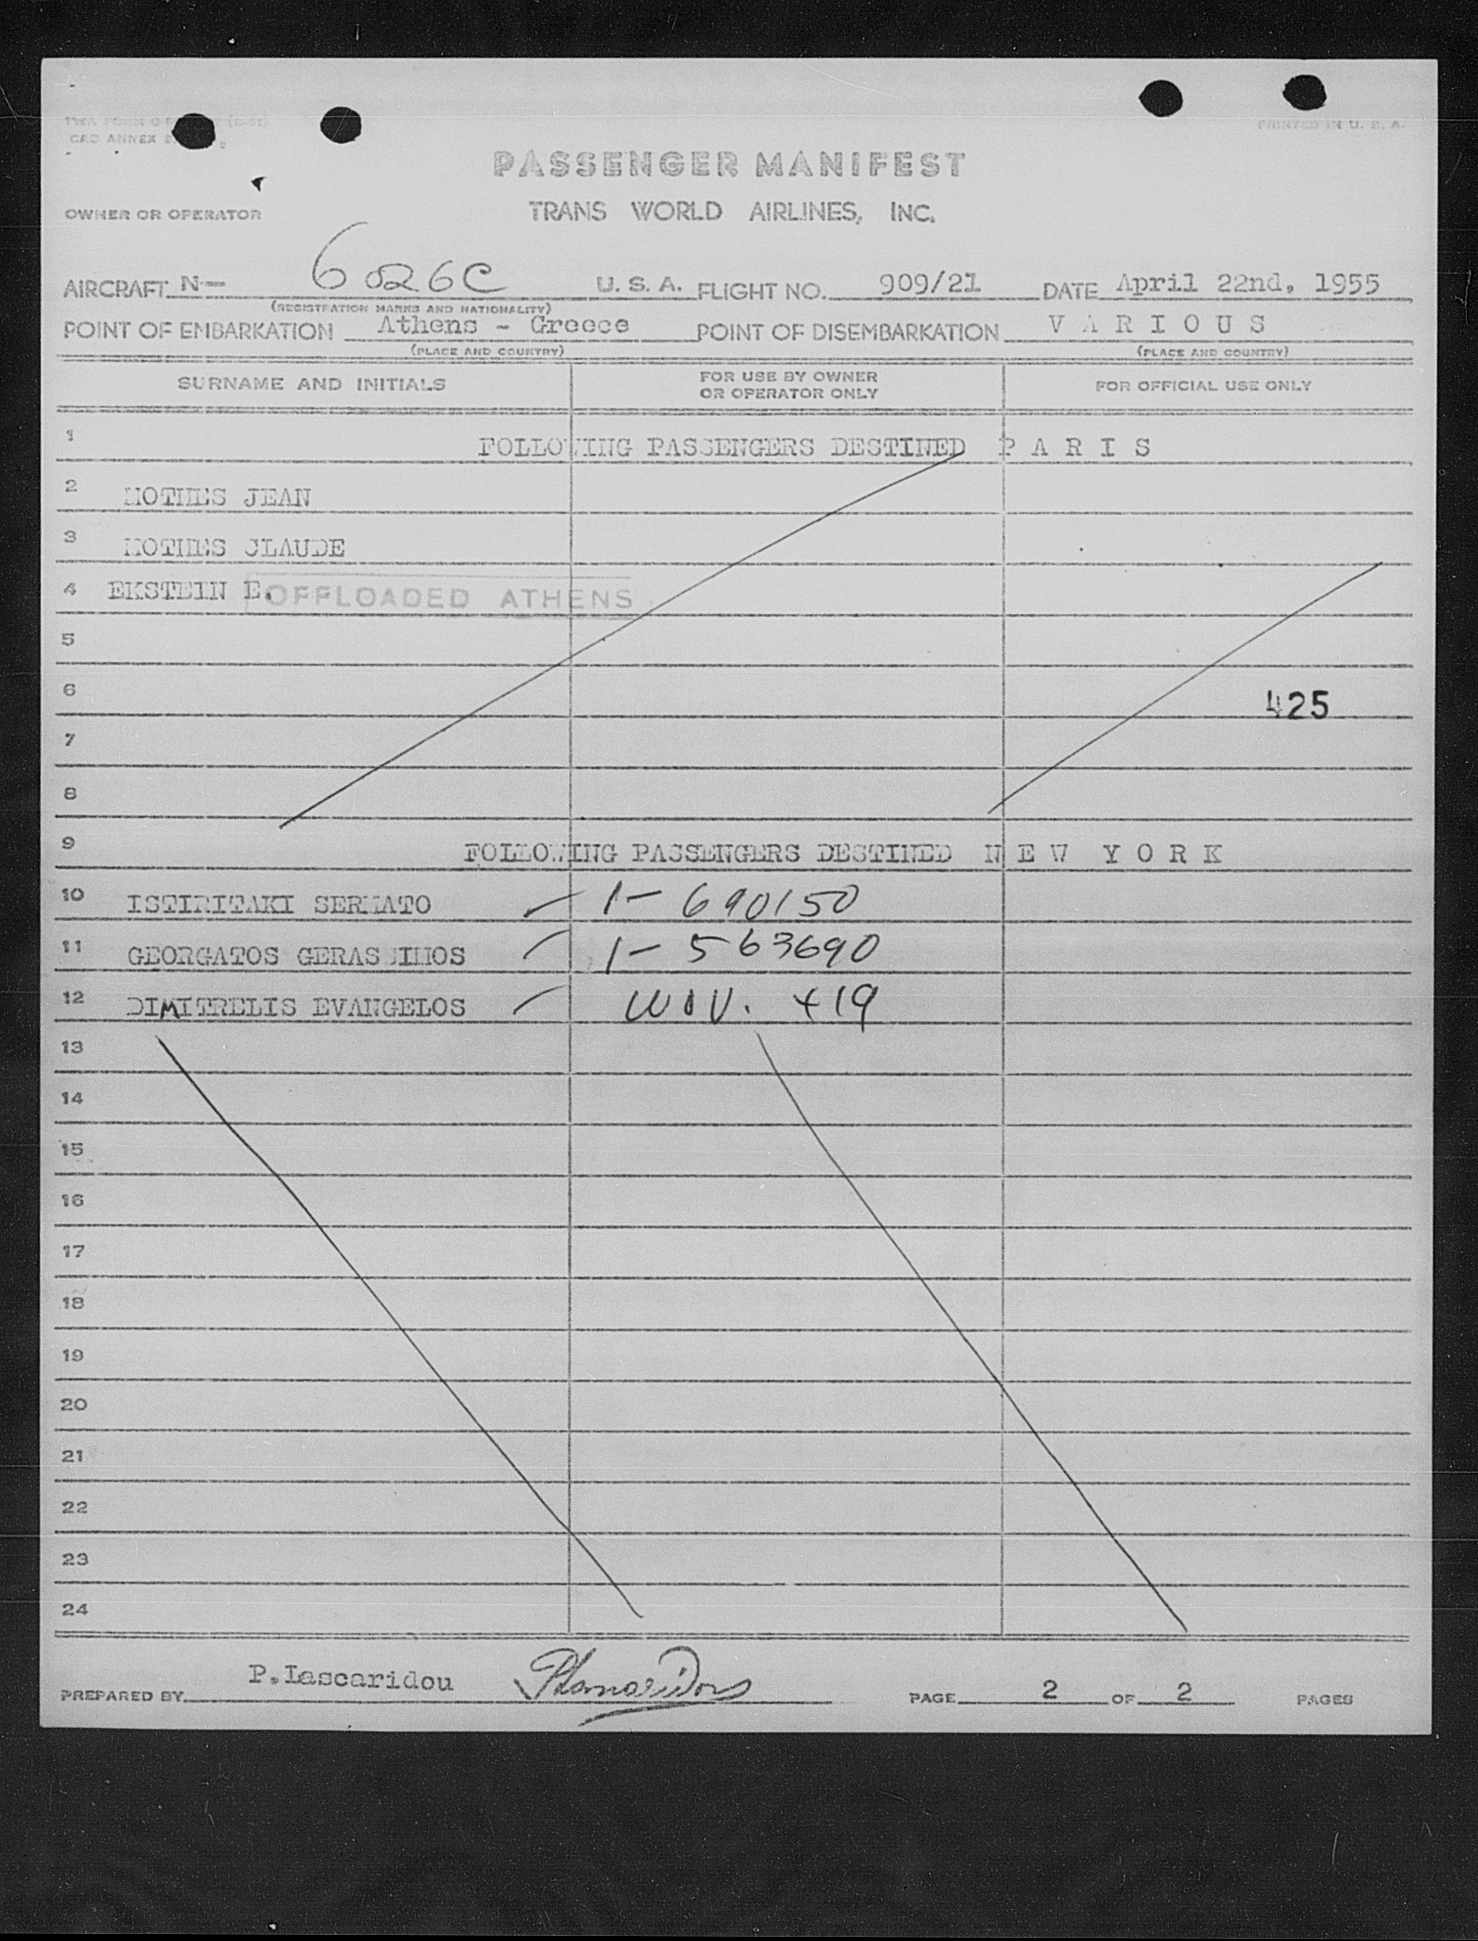 PRINTED IN U. S. A.
CAO ANNEX
PASSENGER MANIFEST
OWNER OR OPERATOR TRANS WORLD AIRLINES, INC.
AIRCRAFT N- 6026C U. S. A. FLIGHT NO. 909/21 DATE April 22nd, 1955
(REGISTRATION MARKS AND NATIONALITY)
POINT OF EMBARKATION Athens - Greece POINT OF DISEMBARKATION VARIOUS
(PLACE AND COUNTRY) (PLACE AND COUNTRY)
SURNAME AND INITIALS FOR USE BY OWNER OR OPERATOR ONLY FOR OFFICIAL USE ONLY
1 FOLLOWING PASSENGERS DESTINED PARIS
2 MOTHES JEAN
3 MOTHES CLAUDE
4 EKSTEIN E. OFFLOADED ATHENS
5
6 425
7
8
9 FOLLOWING PASSENGERS DESTINED NEW YORK
10 SERMATO 1- 690150
11 GEORGATOS GERASSIMOS 1- 563690
12 DIMITRELIS EVANGELOS +19
13
14
15
16
17
18
19
20
21
22
23
24
PREPARED BY P.Lascaridou PAGE 2 OF 2 PAGES